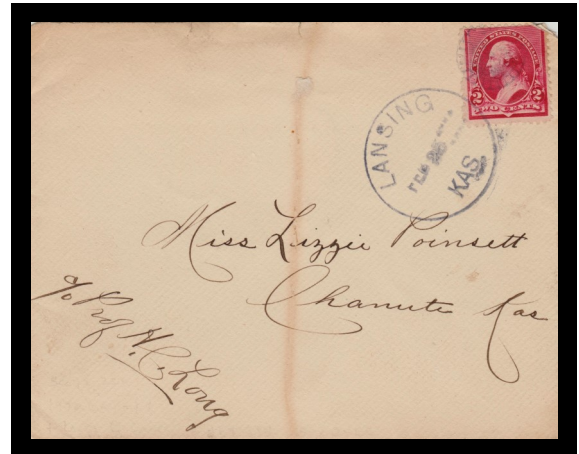 UNITED STATES POSTAGE
2 2
TWO CENTS
LANSING
FEB 25
KAS.
Miss Lizzie Poinsett
Chanute Kas
c/o Prof. H. C. Long